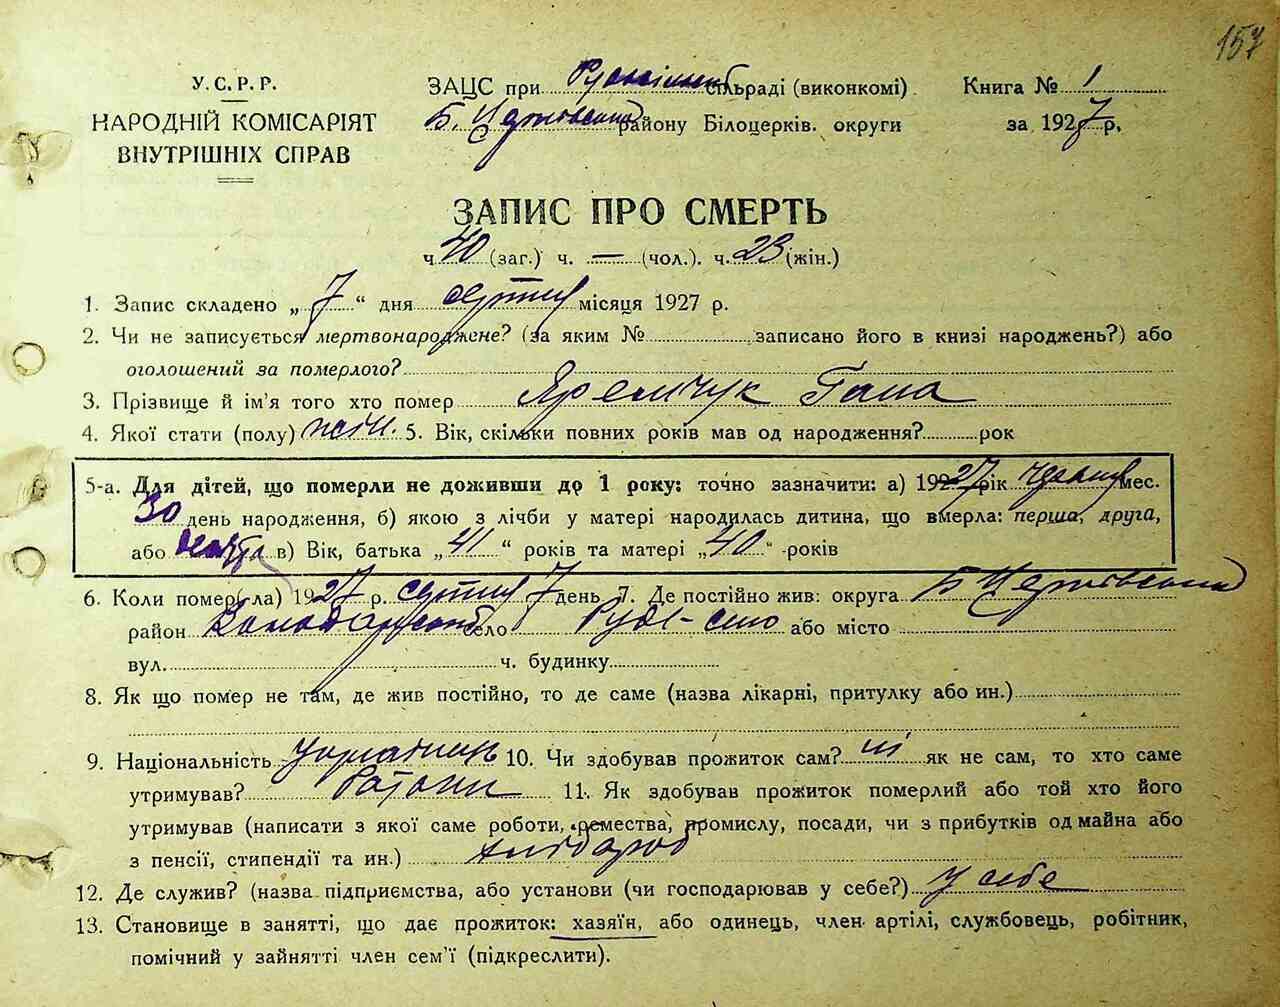 157
У.С.Р.Р.
НАРОДНІЙ КОМІСАРІЯТ
ВНУТРІШНІХ СПРАВ
ЗАЦС при сільраді (виконкомі)
Б. Церківського району Білоцерків. округи
Книга № 1
за 1927 р.
ЗАПИС ПРО СМЕРТЬ
ч. 40 (заг.) ч. — (чол.). ч. 23 (жін.)
1. Запис складено „ 7 “ дня серпня місяця 1927 р.
2. Чи не записується мертвонароджене? (за яким № записано його в книзі народжень?) або
оголошений за померлого?
3. Прізвище й ім'я того хто помер Яремчук Гана
4. Якої стати (полу) жін. 5. Вік, скільки повних років мав од народження? рок
5-а. Для дітей, що померли не доживши до 1 року: точно зазначити: а) 1927 рік червня мес.
30 день народження, б) якою з лічби у матері народилась дитина, що вмерла: перша, друга,
або в) Вік, батька „ 41 “ років та матері „ 40 “ років
6. Коли помер(ла) 1927 р. серпня 7 день 7. Де постійно жив: округа Б Церківська
район Володарський село Руде-село або місто
вул. ч. будинку
8. Як що помер не там, де жив постійно, то де саме (назва лікарні, притулку або ин.)
9. Національність українець 10. Чи здобував прожиток сам? ні як не сам, то хто саме
утримував? батьки 11. Як здобував прожиток померлий або той хто його
утримував (написати з якої саме роботи, ремества, промислу, посади, чи з прибутків од майна або
з пенсії, стипендії та ин.) хлібороб
12. Де служив? (назва підприємства, або установи (чи господарював у себе?) у себе
13. Становище в занятті, що дає прожиток: хазяїн, або одинець, член артілі, службовець, робітник,
помічний у зайнятті член сем'ї (підкреслити).